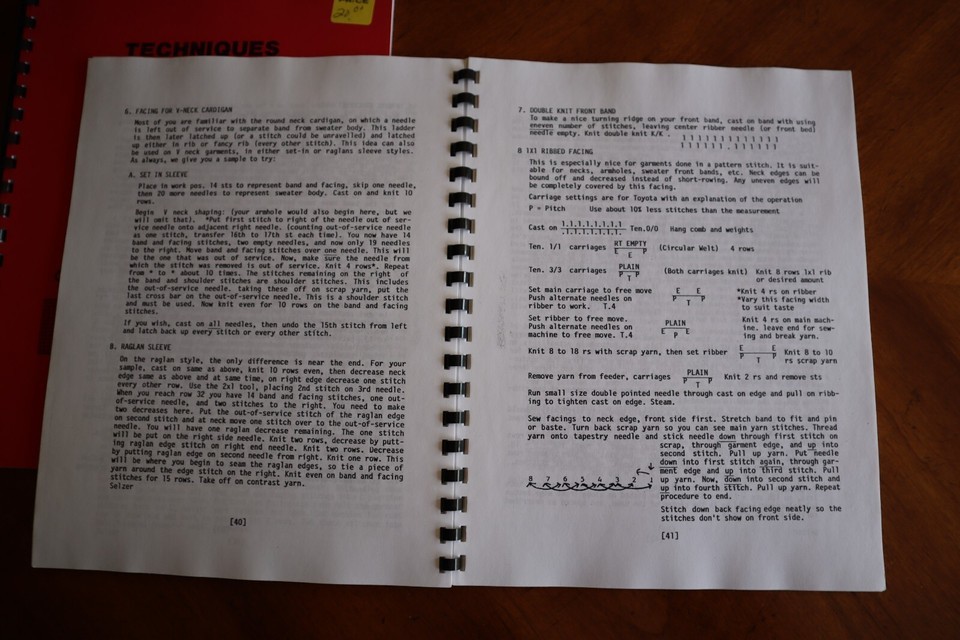 PRICE
20.00
TECHNIQUES
6. FACING FOR V-NECK CARDIGAN
Most of you are familiar with the round neck cardigan, on which a needle
is left out of service to separate band from sweater body. This ladder
is then later latched up (or a stitch could be unravelled) and latched
up either in rib or fancy rib (every other stitch). This idea can also
be used on V neck garments, in either set-in or raglans sleeve styles.
As always, we give you a sample to try:
A. SET IN SLEEVE
Place in work pos. 14 sts to represent band and facing, skip one needle,
then 20 more needles to represent sweater body. Cast on and knit 10
rows.
Begin V neck shaping: (your armhole would also begin here, but we
will omit that). *Put first stitch to right of the needle out of ser-
vice needle onto adjacent right needle. (counting out-of-service needle
as one stitch, transfer 16th to 17th st each time). You now have 14
band and facing stitches, two empty needles, and now only 19 needles
to the right. Move band and facing stitches over one needle. This will
be the one that was out of service. Now, make sure the needle from
which the stitch was removed is out of service. Knit 4 rows*. Repeat
from * to * about 10 times. The stitches remaining on the right of
the band and shoulder stitches are shoulder stitches. This includes
the out-of-service needle. taking these off on scrap yarn, put the
last cross bar on the out-of-service needle. This is a shoulder stitch
and must be used. Now knit even for 10 rows on the band and facing
stitches.
If you wish, cast on all needles, then undo the 15th stitch from left
and latch back up every stitch or every other stitch.
B. RAGLAN SLEEVE
On the raglan style, the only difference is near the end. For your
sample, cast on same as above, knit 10 rows even, then decrease neck
edge same as above and at same time, on right edge decrease one stitch
every other row. Use the 2x1 tool, placing 2nd stitch on 3rd needle.
When you reach row 32 you have 14 band and facing stitches, one out-
of-service needle, and two stitches to the right. You need to make
two decreases here. Put the out-of-service stitch of the raglan edge
on second stitch and at neck move one stitch over to the out-of-service
needle. You will have one raglan decrease remaining. The one stitch
will be put on the right side needle. Knit two rows, decrease by putt-
ing raglan edge stitch on right end needle. Knit two rows. Decrease
by putting raglan edge on second needle from right. Knit one row. This
will be where you begin to seam the raglan edges, so tie a piece of
yarn around the edge stitch on the right. Knit even on band and facing
stitches for 15 rows. Take off on contrast yarn.
Selzer
[40]
7. DOUBLE KNIT FRONT BAND
To make a nice turning ridge on your front band, cast on band with using
uneven number of stitches, leaving center ribber needle (or front bed)
needle empty. Knit double knit K/K .
8 1X1 RIBBED FACING
This is especially nice for garments done in a pattern stitch. It is suit-
able for necks, armholes, sweater front bands, etc. Neck edges can be
bound off and decreased instead of short-rowing. Any uneven edges will
be completely covered by this facing.
Carriage settings are for Toyota with an explanation of the operation
P = Pitch Use about 10% less stitches than the measurement
Cast on Ten.0/0 Hang comb and weights
Ten. 1/1 carriages RT EMPTY E E P (Circular Welt) 4 rows
Ten. 3/3 carriages PLAIN P T P (Both carriages knit) Knit 8 rows 1x1 rib
or desired amount
Set main carriage to free move E E *Knit 4 rs on ribber
Push alternate needles on P T P *Vary this facing width
ribber to work. T.4 to suit taste
Set ribber to free move. Knit 4 rs on main mach-
Push alternate needles on PLAIN ine. leave end for sew-
machine to free move. T.4 E P E ing and break yarn.
Knit 8 to 18 rs with scrap yarn, then set ribber E E P T P Knit 8 to 10
rs scrap yarn
Remove yarn from feeder, carriages PLAIN P T P Knit 2 rs and remove sts
Run small size double pointed needle through cast on edge and pull on ribb-
ing to tighten cast on edge. Steam.
Sew facings to neck edge, front side first. Stretch band to fit and pin
or baste. Turn back scrap yarn so you can see main yarn stitches. Thread
yarn onto tapestry needle and stick needle down through first stitch on
scrap, through garment edge, and up into
second stitch. Pull up yarn. Put needle
down into first stitch again, through gar-
ment edge and up into third stitch. Pull
up yarn. Now, down into second stitch and
up into fourth stitch. Pull up yarn. Repeat
procedure to end.
8 7 6 5 4 3 2 1
Stitch down back facing edge neatly so the
stitches don't show on front side.
[41]